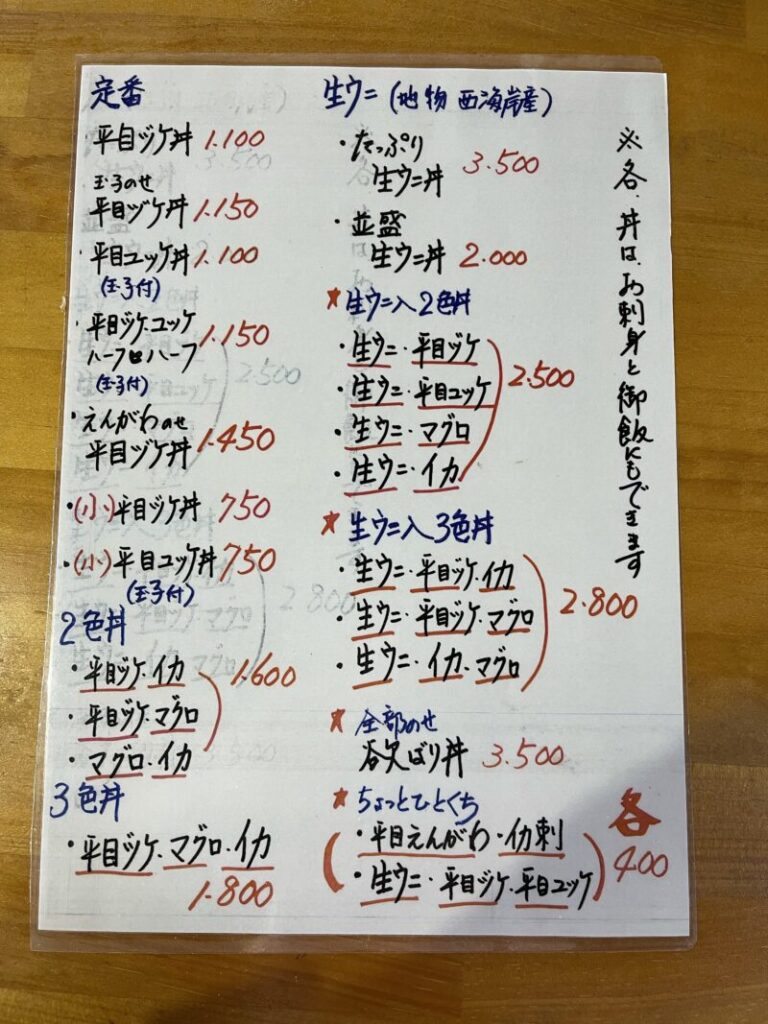 定番
平目ヅケ丼 1.100
玉子のせ
平目ヅケ丼 1.150
・平目ユッケ丼 1.100
(玉子付)
・平目ヅケ.ユッケ 1.150
ハーフ&ハーフ
(玉子付)
・えんがわのせ
平目ヅケ丼 1.450
・(小)平目ヅケ丼 750
・(小)平目ユッケ丼 750
(玉子付)
2色丼
・平目ヅケ.イカ 1.600
・平目ヅケ.マグロ
・マグロ.イカ
3色丼
・平目ヅケ.マグロ.イカ
1.800
生ウニ (地物 西海岸産)
・たっぷり
生ウニ丼 3.500
・並盛
生ウニ丼 2.000
★生ウニ入2色丼
・生ウニ・平目ヅケ
・生ウニ・平目ユッケ 2.500
・生ウニ・マグロ
・生ウニ・イカ
★生ウニ入3色丼
・生ウニ・平目ヅケ.イカ
・生ウニ・平目ヅケ.マグロ 2.800
・生ウニ・イカ.マグロ
★全部のせ
欲ばり丼 3.500
★ちょっとひとくち
・平目えんがわ・イカ刺
・生ウニ・平目ヅケ.平目ユッケ
各
400
※各.丼は.お刺身と御飯にもできます